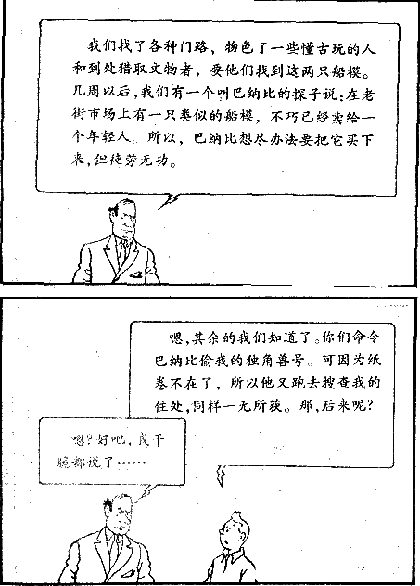 我们找了各种门路，物色了一些懂古玩的人
和到处猎取文物者，要他们找到这两只船模。
几周以后，我们有一个叫巴纳比的探子说：在老
街市场上有一只类似的船模，不巧已经卖给一
个年轻人。所以，巴纳比想尽办法要把它买下
来，但徒劳无功。
嗯，其余的我们知道了。你们命令
巴纳比偷我的独角兽号。可因为纸
卷不在了，所以他又跑去搜查我的
住处，同样一无所获。那，后来呢？
嗯？好吧，我干
脆都说了……